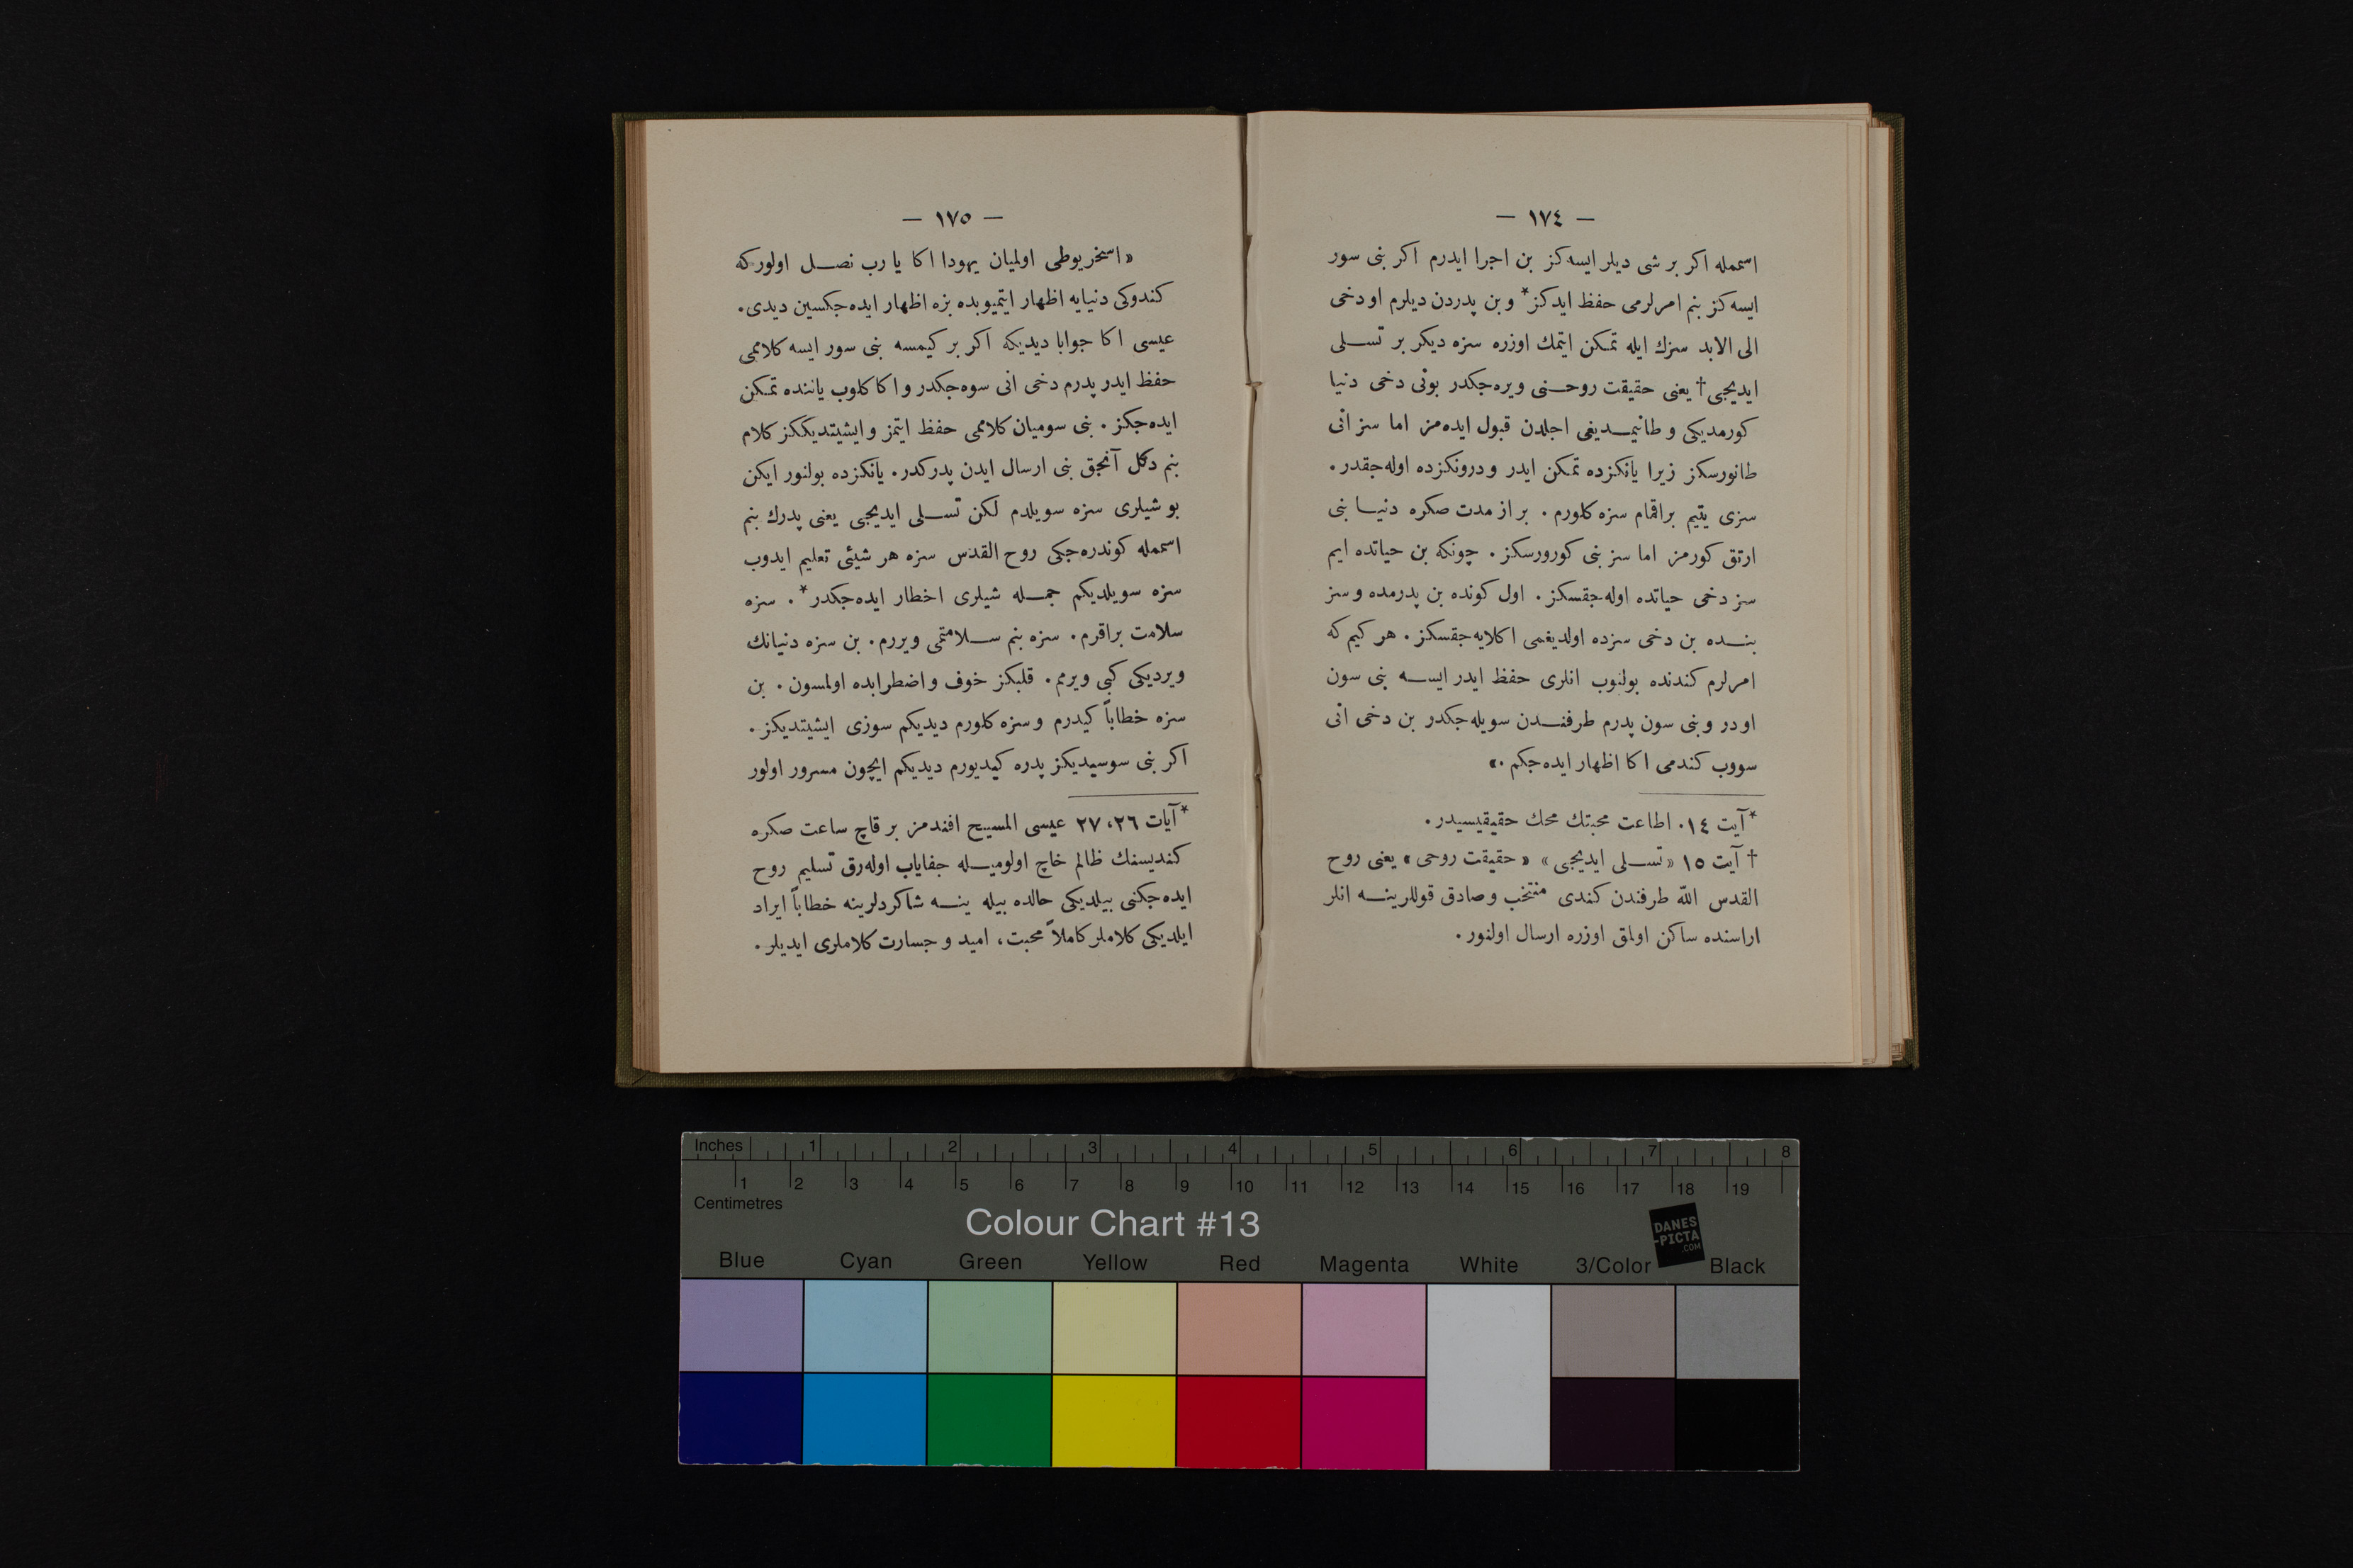 — ١٧٤ —
اسممله اكر بر شی دیلر ایسه‌كز بن اجرا ایدرم اكر بنی سور
ایسه‌كز بنم امرلرمی حفظ ایدكز* و بن پدردن دیلرم او دخی
الی الابد سزك ایله تمكن ایتمك اوزره سزه دیكر بر تسـلی
ایدیجی † یعنی حقیقت روحـنی ویره‌جكدر بونی دخی دنیا
كورمدیكی و طانیمـدیغی اجلدن قبول ایده‌مز اما سز انی
طانورسكز زیرا یانكزده تمكن ایدر و درونكزده اوله‌جقدر.
سزی یتیم براقمام سزه كلورم. بر از مدت صكره دنیـا بنی
ارتق كورمز اما سز بنی كورورسكز. چونكه بن حیاتده ایم
سز دخی حیاتده اوله‌جقسكز. اول كونده بن پدرمده و سز
بنـده بن دخی سزده اولدیغمی اكلایه‌جقسكز. هر كیم كه
امرلرم كندنده بولنوب انلری حفظ ایدر ایسـه بنی سون
او در و بنی سون پدرم طرفنـدن سویله‌جكدر بن دخی انی
سووب كندمی اكا اظهار ایده‌جكم.»
* آیت ١٤. اطاعت محبتك محك حقیقیسیدر.
† آیت ١٥ «تسـلی ایدیجی» «حقیقت روحی» یعنی روح
القدس الله طرفندن كندی منتخب و صادق قوللرینـه انلر
اراسنده ساكن اولمق اوزره ارسال اولنور.
— ١٧٥ —
«اسخریوطی اولمیان یهودا اكا یا رب نصـل اولور كه
كندوكی دنیایه اظهار ایتمیوبده بزه اظهار ایده‌جكسین دیدی.
عیسی اكا جوابا دیدیكه اكر بر كیمسه بنی سور ایسه كلاممی
حفظ ایدر پدرم دخی انی سوه‌جكدر و اكا كلوب یاننده تمكن
ایده‌جكز. بنی سومیان كلاممی حفظ ایتمز و ایشیتدیككز كلام
بنم دكل آنجق بنی ارسال ایدن پدركدر. یانكزده بولنور ایكن
بو شیلری سزه سویلدم لكن تسـلی ایدیجی یعنی پدرك بنم
اسممله كوندره‌جكی روح القدس سزه هر شیئی تعلیم ایدوب
سزه سویلدیكم جمـله شیلری اخطار ایده‌جكدر*. سزه
سلامت براقرم. سزه بنم سـلامتمی ویررم. بن سزه دنیانك
ویردیكی كبی ویرمم. قلبكز خوف و اضطرابده اولمسون. بن
سزه خطاباً كیدرم و سزه كلورم دیدیكم سوزی ایشیتدیكز.
اكر بنی سوسیدیكز پدره كیدیورم دیدیكم ایچون مسرور اولور
* آیات ٢٦، ٢٧ عیسی المسیح افندمز بر قاچ ساعت صكره
كندیسنك ظالم خاچ اولومیـله جفایاب اوله‌رق تسلیم روح
ایده‌جكنی بیلدیكی حالده بیله ینـه شاكردلرینه خطاباً ایراد
ایلدیكی كلاملر كاملاً محبت، امید و جسارت كلاملری ایدیلر.
Inches 1 2 3 4 5 6 7 8
1 2 3 4 5 6 7 8 9 10 11 12 13 14 15 16 17 18 19
Centimetres
Colour Chart #13
DANES
-PICTA
.COM
Blue Cyan Green Yellow Red Magenta White 3/Color Black